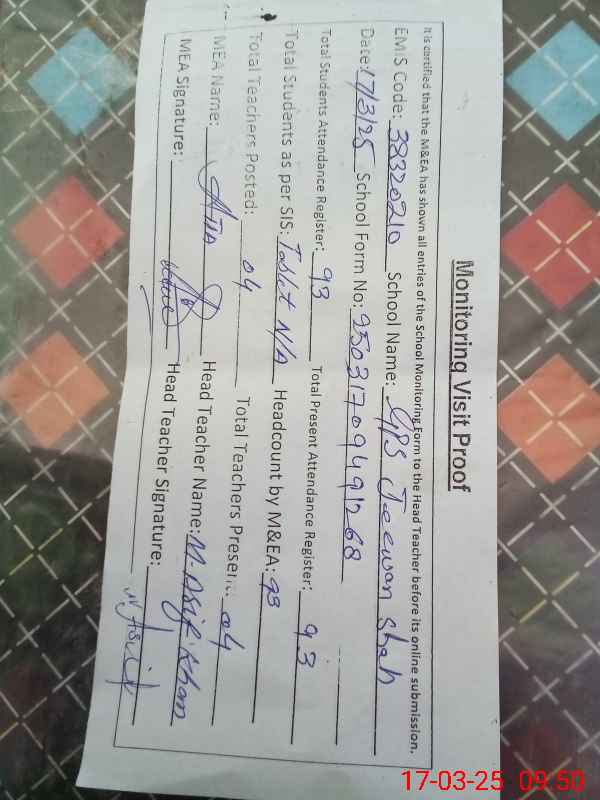 Monitoring Visit Proof
It is certified that the M&EA has shown all entries of the School Monitoring Form to the Head Teacher before its online submission.
EMIS Code: 38320210 School Name: GPS Jeewan Shah
Date: 17/3/25 School Form No: 25031709491268
Total Students Attendance Register: 93 Total Present Attendance Register: 93
Total Students as per SIS: Tablet N/A Headcount by M&EA: 93
Total Teachers Posted: 04 Total Teachers Present: 04
MEA Name: Head Teacher Name: M. Asif Khan
MEA Signature: Head Teacher Signature: M Asif
17-03-25 09:50